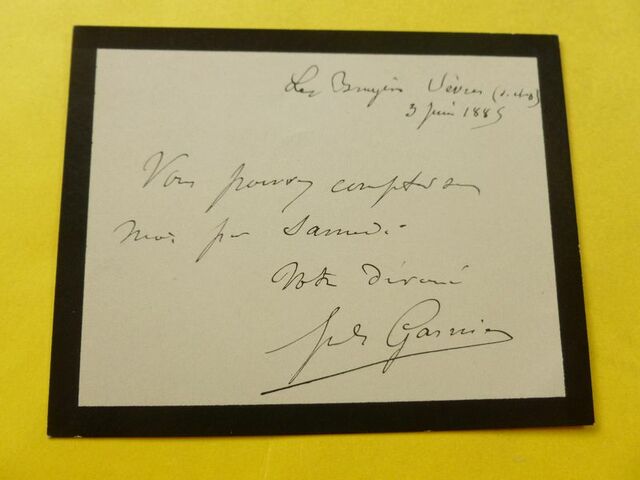 Les Bruyères Sèvres (S. et O.)
3 juin 1885
Vous pouvez compter sur
moi pour Samedi
Votre dévoué
Jules Garnier